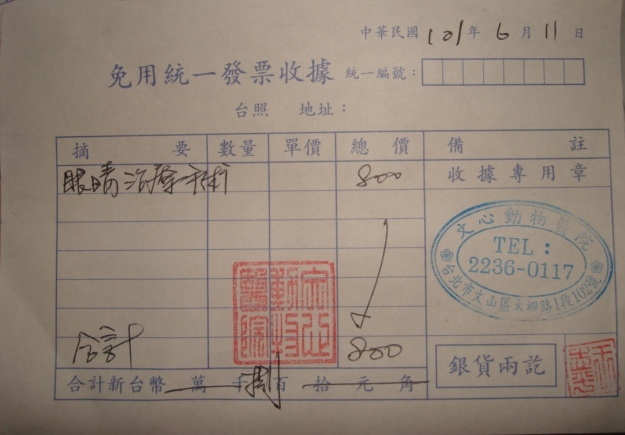 中華民國101年6月11日
免用統一發票收據 統一編號：
台照 地址：
摘要 數量 單價 總價 備註
眼睛治療手術 800 收據專用章
文心動物醫院
TEL：
2236-0117
台北市文山區木柵路1段102號
合計 800
銀貨兩訖
合計新台幣 萬 千 捌百 拾 元 角